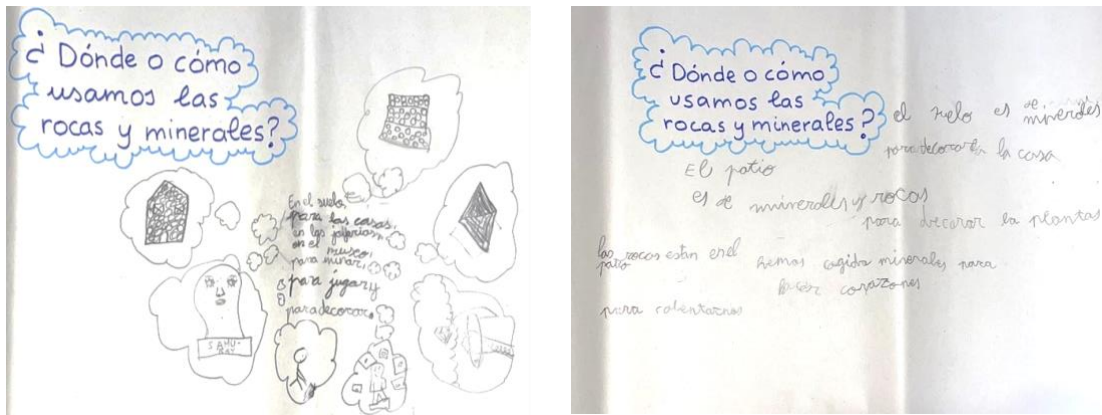 ¿Dónde o cómo
usamos las
rocas y minerales?
En el suelo,
para las casas,
en las joyerías,
en el museo,
para mirar,
para jugar y
para decorar.
SAMU-
RAY
¿Dónde o cómo
usamos las
rocas y minerales?
el suelo es de
minerales
para decorar la casa
El patio
es de minerales y rocas
para decorar la plantas
las rocas están en el
patio
hemos cogido minerales para
hacer corazones
para calentarnos